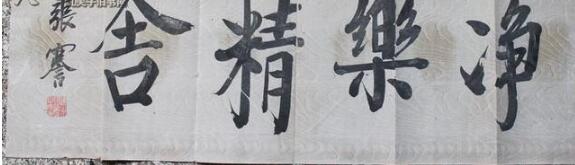 净樂精舍
張謇